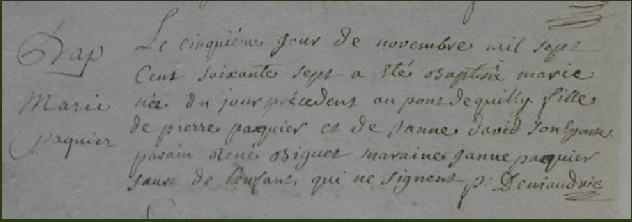 Bap
Marie
paquier
Le cinquiéme jour de novembre mil sept
Cent soixante sept a été Baptisée marie
née du jour précedent au pont de quilly fille
de pierre paquier et de Janne david son Epouse
parain René Biguet maraine Janne paquier
saur de l'enfant, qui ne signent p.